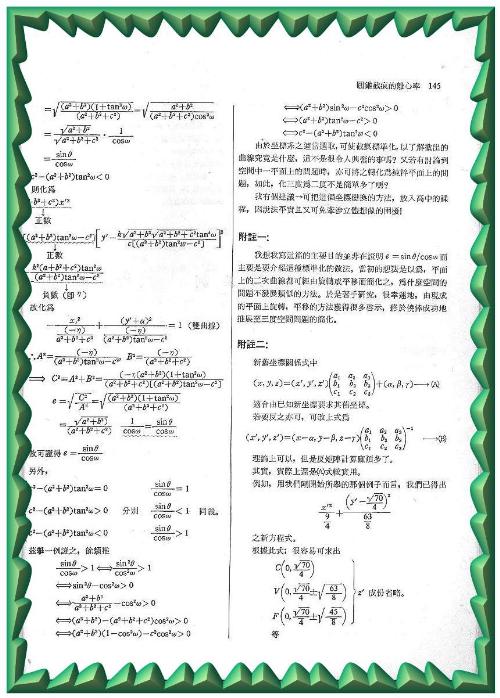 圓錐截痕的離心率 145
=√((a²+b²)(1+tan²ω)/(a²+b²+c²))=√((a²+b²)/((a²+b²+c²)cos²ω))
=√(a²+b²)/√(a²+b²+c²)·1/cosω
=sinθ/cosω
c²−(a²+b²)tan²ω<0
則化為
+b²+c²)x′²
正數
正數
負數(即η)
故化為
x′²/((−η)/(a²+b²+c²))−(y′+α)²/((−η)/((a²+b²)tan²ω−c²))=1(雙曲線)
∴A²=(−η)/((a²+b²)tan²ω−c²), B²=(−η)/(a²+b²+c²)
⟹ C²=A²+B²=(−η(a²+b²)(1+tan²ω))/((a²+b²+c²)[(a²+b²)tan²ω−c²])
e=√(C²/A²)=√((a²+b²)(1+tan²ω)/(a²+b²+c²))
=√(a²+b²)/√(a²+b²+c²) 1/cosω=sinθ/cosω
故可證得 e=sinθ/cosω
另外,
c²−(a²+b²)tan²ω=0 sinθ/cosω=1
c²−(a²+b²)tan²ω>0 分別 sinθ/cosω<1 同義。
c²−(a²+b²)tan²ω<0 sinθ/cosω>1
茲舉一例證之,餘類推
sinθ/cosω>1⟺sin²θ/cos²ω>1
⟺sin²θ−cos²ω>0
⟺(a²+b²)/(a²+b²+c²)−cos²ω>0
⟺(a²+b²)−(a²+b²+c²)cos²ω>0
⟺(a²+b²)(1−cos²ω)−c²cos²ω>0
⟺(a²+b²)sin²ω−c²cos²ω>0
⟺(a²+b²)tan²ω−c²>0
⟺c²−(a²+b²)tan²ω<0
由於坐標系之適當選取,可使截痕標準化,以了解截出的
曲線究竟是什麼,這不是很令人興奮的事嗎?又若有討論到
空間中一平面上的問題時,亦可將之轉化為純粹平面上的問
題,如此,化三度為二度不是簡單多了嗎?
我有個建議→可把這個坐標變換的方法,放入高中的課
程,因說法平實且又可免牽涉立體想像的困擾!
附註一:
我想我寫這篇的主要目的並非在證明 e=sinθ/cosω 而
主要是要介紹這種標準化的做法,當初的想法是以為,平面
上的二次曲線都可經由旋轉或平移而簡化之,為什麼空間的
問題不發展類似的方法。於是著手研究,很幸運地,由現成
的平面上旋轉,平移的方法獲得很多啓示,終於使你成功地
推展至三度空間問題的簡化。
附註二:
新舊坐標關係式中
(x, y, z)=(x′, y′, z′)(a₁ a₂ a₃ / b₁ b₂ b₃ / c₁ c₂ c₃)+(α, β, γ)⟶(A)
適合由已知新坐標要求其舊坐標。
若要反之亦可,可改上式為
(x′, y′, z′)=(x−α, y−β, z−γ)(a₁ a₂ a₃ / b₁ b₂ b₃ / c₁ c₂ c₃)⁻¹ ⟶(B)
理論上可以,但是反矩陣計算麻煩多了。
其實,實際上還是(A)式較實用。
例如,用我們剛開始所舉的那個例子而言,我們已得出
x′²/(9/4)+(y′−√70/4)²/(63/8)
之新方程式。
根據此式,很容易可求出
C(0, √70/4)
V(0, √70/4±√(63/8)) z′ 成份省略。
F(0, √70/4±√(45/8))
等